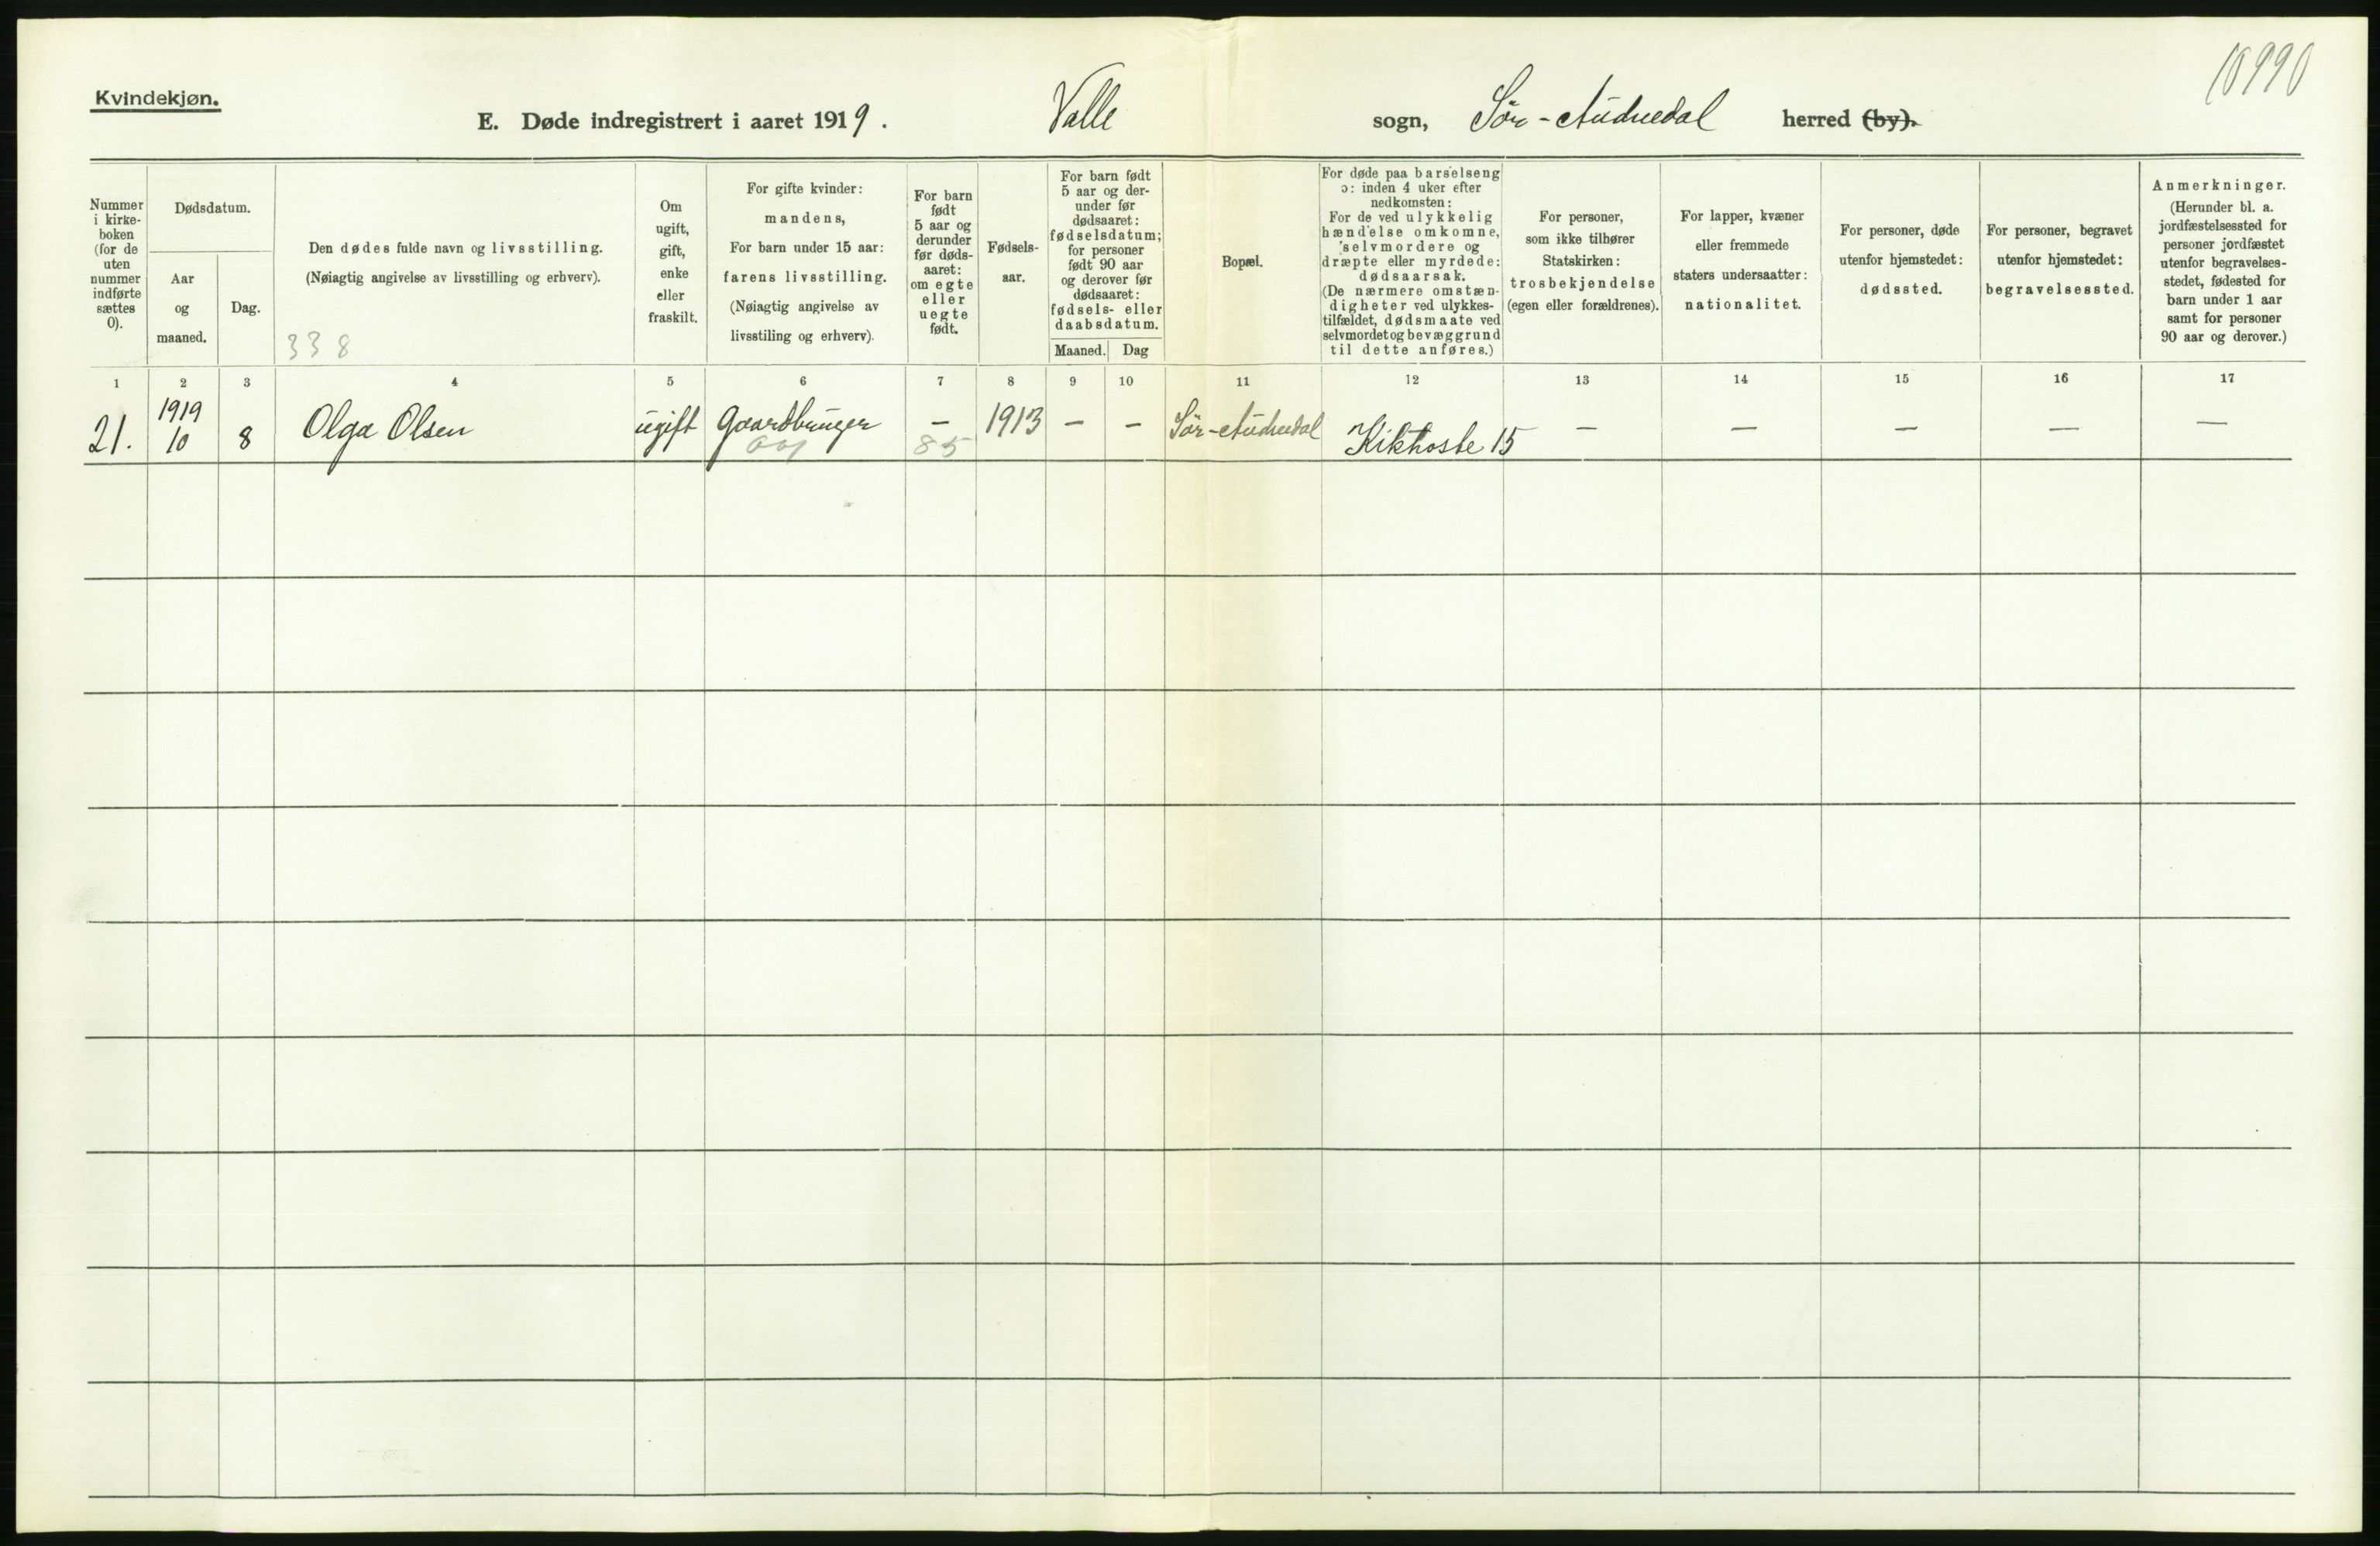 10990
Kvindekjøn.
E. Døde indregistrert i aaret 1919. Valle sogn, Sør-Audnedal herred (by).
Nummer
i kirke-
boken
(for de
uten
nummer
indførte
sættes
0).
Dødsdatum.
Aar
og
maaned.
Dag.
Den dødes fulde navn og livsstilling.
(Nøiagtig angivelse av livsstilling og erhverv).
338
Om
ugift,
gift,
enke
eller
fraskilt.
For gifte kvinder:
mandens,
For barn under 15 aar:
farens livsstilling.
(Nøiagtig angivelse av
livsstiling og erhverv).
For barn
født
5 aar og
derunder
før døds-
aaret:
om egte
eller
uegte
født.
Fødsels-
aar.
For barn født
5 aar og der-
under før
dødsaaret:
fødselsdatum;
for personer
født 90 aar
og derover før
dødsaaret:
fødsels- eller
daabsdatum.
Maaned. Dag
Bopæl.
For døde paa barselseng
ɔ: inden 4 uker efter
nedkomsten:
For de ved ulykkelig
hændelse omkomne,
selvmordere og
dræpte eller myrdede:
dødsaarsak.
(De nærmere omstæn-
digheter ved ulykkes-
tilfældet, dødsmaate ved
selvmordet og bevæggrund
til dette anføres.)
For personer,
som ikke tilhører
Statskirken:
trosbekjendelse
(egen eller forældrenes).
For lapper, kvæner
eller fremmede
staters undersaatter:
nationalitet.
For personer, døde
utenfor hjemstedet:
dødssted.
For personer, begravet
utenfor hjemstedet:
begravelsessted.
Anmerkninger.
(Herunder bl. a.
jordfæstelsessted for
personer jordfæstet
utenfor begravelses-
stedet, fødested for
barn under 1 aar
samt for personer
90 aar og derover.)
1 2 3 4 5 6 7 8 9 10 11 12 13 14 15 16 17
1919
21. 10 8 Olga Olsen ugift Gaardbruger — 1913 — — Sør-Audnedal Kikhoste 15 — — — — —
85